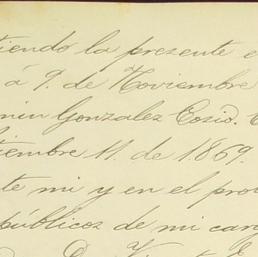 tiendo la presente e
á 9. de Noviembre
min Gonzalez Cosio.
tiembre 11. de 1869.
te mi y en el pro
públicos de mi carg